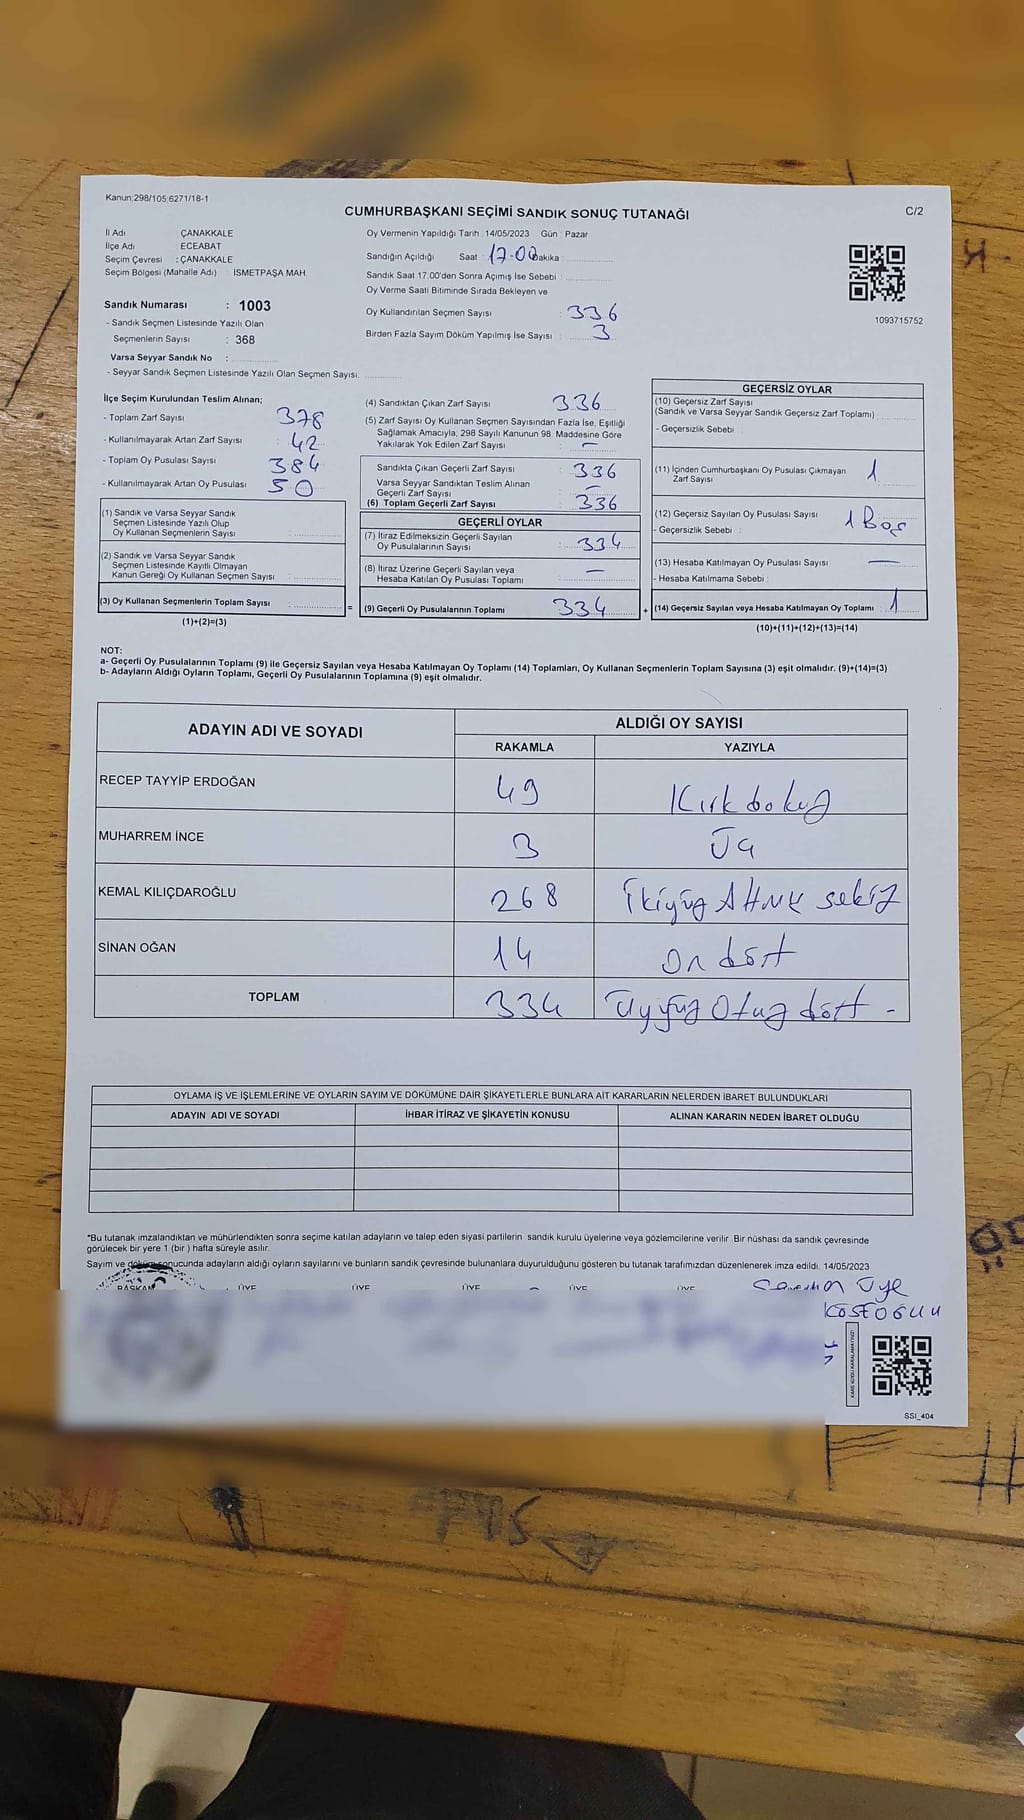 Kanun;298/105;6271/18-1
CUMHURBAŞKANI SEÇİMİ SANDIK SONUÇ TUTANAĞI
C/2
İl Adı : ÇANAKKALE
İlçe Adı : ECEABAT
Seçim Çevresi : ÇANAKKALE
Seçim Bölgesi (Mahalle Adı) : İSMETPAŞA MAH.
Sandık Numarası : 1003
- Sandık Seçmen Listesinde Yazılı Olan
Seçmenlerin Sayısı : 368
Varsa Seyyar Sandık No :
- Seyyar Sandık Seçmen Listesinde Yazılı Olan Seçmen Sayısı:
Oy Vermenin Yapıldığı Tarih : 14/05/2023 Gün : Pazar
Sandığın Açıldığı Saat 17.00 Dakika :
Sandık Saat 17.00'den Sonra Açımış İse Sebebi :
Oy Verme Saati Bitiminde Sırada Bekleyen ve
Oy Kullandırılan Seçmen Sayısı : 336
Birden Fazla Sayım Döküm Yapılmış İse Sayısı : 3
1093715752
İlçe Seçim Kurulundan Teslim Alınan;
- Toplam Zarf Sayısı 378
- Kullanılmayarak Artan Zarf Sayısı : 42
- Toplam Oy Pusulası Sayısı 384
- Kullanılmayarak Artan Oy Pusulası : 50
(1) Sandık ve Varsa Seyyar Sandık
Seçmen Listesinde Yazılı Olup
Oy Kullanan Seçmenlerin Sayısı :
(2) Sandık ve Varsa Seyyar Sandık
Seçmen Listesinde Kayıtlı Olmayan
Kanun Gereği Oy Kullanan Seçmen Sayısı :
(3) Oy Kullanan Seçmenlerin Toplam Sayısı : =
(1)+(2)=(3)
(4) Sandıktan Çıkan Zarf Sayısı 336
(5) Zarf Sayısı Oy Kullanan Seçmen Sayısından Fazla İse, Eşitliği
Sağlamak Amacıyla, 298 Sayılı Kanunun 98. Maddesine Göre
Yakılarak Yok Edilen Zarf Sayısı : -
Sandıkta Çıkan Geçerli Zarf Sayısı : 336
Varsa Seyyar Sandıktan Teslim Alınan
Geçerli Zarf Sayısı : -
(6) Toplam Geçerli Zarf Sayısı : 336
GEÇERLİ OYLAR
(7) İtiraz Edilmeksizin Geçerli Sayılan
Oy Pusulalarının Sayısı : 334
(8) İtiraz Üzerine Geçerli Sayılan veya
Hesaba Katılan Oy Pusulası Toplamı : -
(9) Geçerli Oy Pusulalarının Toplamı 334 +
GEÇERSİZ OYLAR
(10) Geçersiz Zarf Sayısı
(Sandık ve Varsa Seyyar Sandık Geçersiz Zarf Toplamı) :
- Geçersizlik Sebebi :
(11) İçinden Cumhurbaşkanı Oy Pusulası Çıkmayan
Zarf Sayısı : 1
(12) Geçersiz Sayılan Oy Pusulası Sayısı : 1 Boş
- Geçersizlik Sebebi :
(13) Hesaba Katılmayan Oy Pusulası Sayısı : -
- Hesaba Katılmama Sebebi :
(14) Geçersiz Sayılan veya Hesaba Katılmayan Oy Toplamı : 1
(10)+(11)+(12)+(13)=(14)
NOT:
a- Geçerli Oy Pusulalarının Toplamı (9) ile Geçersiz Sayılan veya Hesaba Katılmayan Oy Toplamı (14) Toplamları, Oy Kullanan Seçmenlerin Toplam Sayısına (3) eşit olmalıdır. (9)+(14)=(3)
b- Adayların Aldığı Oyların Toplamı, Geçerli Oy Pusulalarının Toplamına (9) eşit olmalıdır.
ADAYIN ADI VE SOYADI ALDIĞI OY SAYISI
RAKAMLA YAZIYLA
RECEP TAYYİP ERDOĞAN 49 Kırk dokuz
MUHARREM İNCE 3 Üç
KEMAL KILIÇDAROĞLU 268 İkiyüz Altmış sekiz
SİNAN OĞAN 14 On dört
TOPLAM 334 Üçyüz Otuz dört -
OYLAMA İŞ VE İŞLEMLERİNE VE OYLARIN SAYIM VE DÖKÜMÜNE DAİR ŞİKAYETLERLE BUNLARA AİT KARARLARIN NELERDEN İBARET BULUNDUKLARI
ADAYIN ADI VE SOYADI İHBAR İTİRAZ VE ŞİKAYETİN KONUSU ALINAN KARARIN NEDEN İBARET OLDUĞU
*Bu tutanak imzalandıktan ve mühürlendikten sonra seçime katılan adayların ve talep eden siyasi partilerin sandık kurulu üyelerine veya gözlemcilerine verilir. Bir nüshası da sandık çevresinde
görülecek bir yere 1 (bir ) hafta süreyle asılır.
Sayım ve döküm sonucunda adayların aldığı oyların sayılarını ve bunların sandık çevresinde bulunanlara duyurulduğunu gösteren bu tutanak tarafımızdan düzenlenerek imza edildi. 14/05/2023
BAŞKAN ÜYE ÜYE ÜYE ÜYE ÜYE
Üye
KÖSEOĞLU
KARE KODU KARALAMAYINIZ!
SSİ_404